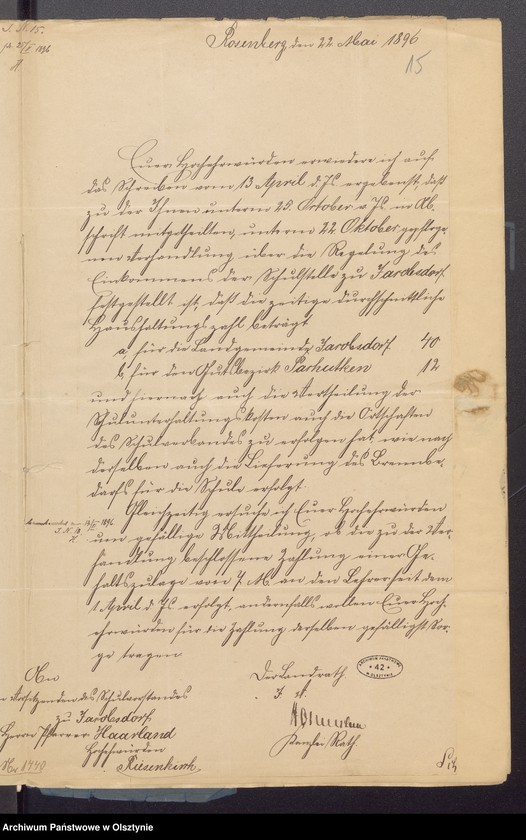 J. N. 15.
Rosenberg, den 22 Mai 1896
15
Euer Hochehrwürden erwidere ich auf
das Schreiben vom 13 April d. Js ergebenst, daß
zu der Ihnen unterm 25. October v Js in Ab,
schrift mitgetheilten, unterm 22. Oktober gepfloge
nen Verhandlung über die Regelung des
Einkommens der Schulstelle zu Jacobsdorf
festgestellt ist, daß die zeitige durchschnittliche
Haushaltungszahl beträgt
a, für die Landgemeinde Jacobsdorf 40
b, für den Gutsbezirk Parhutken 12
und hiernach auch die Vertheilung der
Schulunterhaltungskosten auf die Ortschaften
des Schulverbandes zu erfolgen hat, wie nach
derselben auch die Lieferung des Brennbe,
darfs für die Schule erfolgt
Gleichzeitig ersuche ich Euer Hochehrwürden
um gefällige Mittheilung, ob die zu der Ver
handlung beschlossene Zahlung einer Ge,
haltszulage von 7 M. an den Lehrer seit dem
1 April d. Js erfolgt, andernfalls wollen Euer Hoch,
ehrwürden für die Zahlung derselben gefälligst Sor,
ge tragen
Der Landrath
J. V.
Kanzlei Rath.
An
Vorsitzenden des Schulvorstandes
zu Jacobsdorf,
Herrn Pfarrer Haarland
Hochehrwürden
Riesenkirch,
No 1440
ARCHIWUM PAŃSTWOWE
42
W OLSZTYNIE
Archiwum Państwowe w Olsztynie